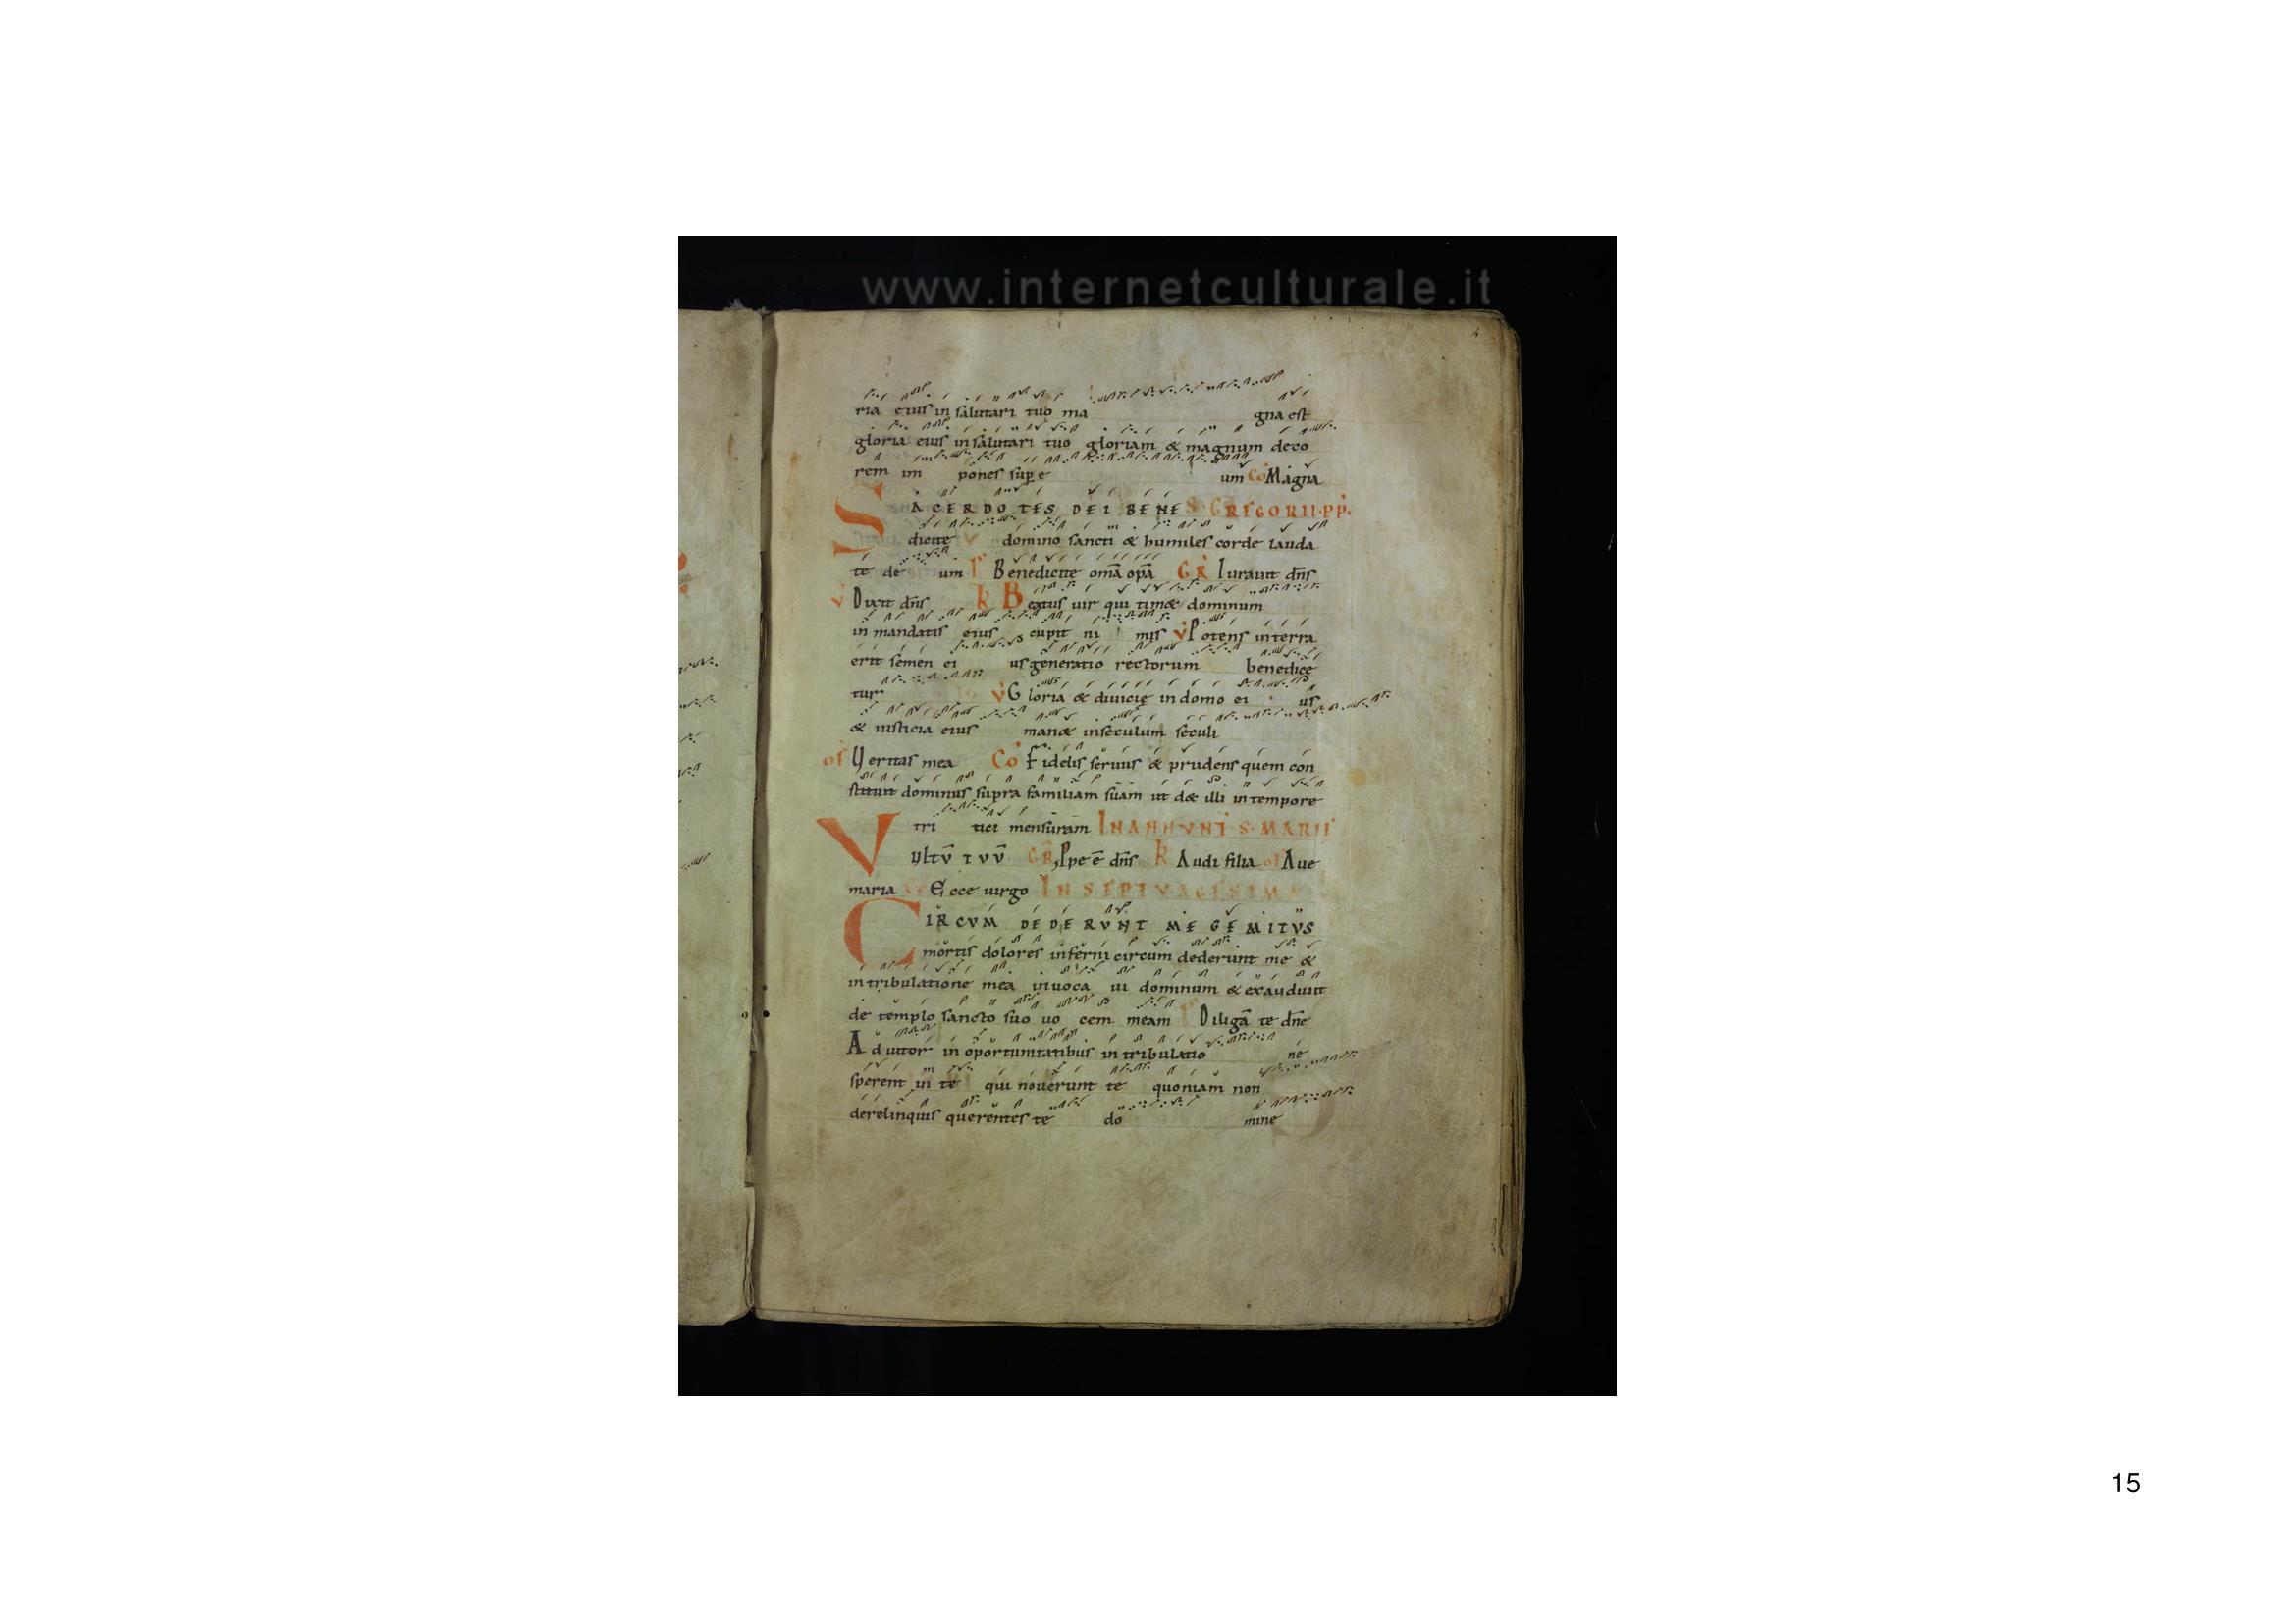 www.internetculturale.it
4
ria eius in salutari tuo ma gna est
gloria eius in salutari tuo gloriam & magnum deco
rem im pones supe um Co Magna
SACERDOTES DEI BENE S GREGORII PP.
dicite v domino sancti & humiles corde lauda
te de um Ps Benedicite omā opā GR Iurauit dn̄s
v Dixit dn̄s R Beatus uir qui tim& dominum
in mandatis eius cupit ni mis v Potens in terra
erit semen ei us generatio rectorum benedice
tur v Gloria & diuicię in domo ei us
& iusticia eius man& in seculum seculi
of Veritas mea Co Fidelis seruus & prudens quem con
stituit dominus supra familiam suam ut d& illi in tempore
tri tici mensuram IN ANNUNT S MARIE
Vultū tuū GR Ppe ē dn̄s R Audi filia of Aue
maria Ecce uirgo IN SEPTUAGESIMA
CIRCUM DEDERUNT ME GEMITUS
mortis dolores inferni circum dederunt me &
in tribulatione mea inuoca ui dominum & exaudiuit
de templo sancto suo uo cem meam Diligā te dn̄e
Adiutor in oportunitatibus in tribulatio ne
sperent in te qui nouerunt te quoniam non
derelinquis querentes te do mine
15